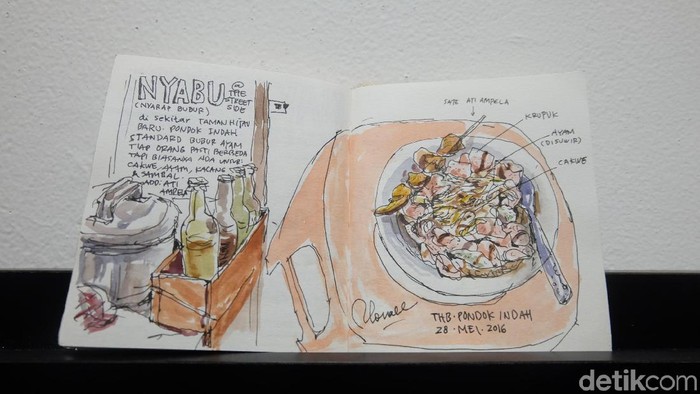 NYABU @ THE STREET SIDE
(NYARAP BUBUR)
di SEKITAR TAMAN HIJAU
BARU. PONDOK INDAH
STANDARD BUBUR AYAM
TIAP ORANG PASTI BERBEDA
TAPI BIASANYA ADA UNSUR
CAKWE, AYAM, KACANG
& SAMBAL.
ADD: ATI
AMPELA
SATE ATI AMPELA
KRUPUK
AYAM
(DISUWIR)
CAKWE
THB. PONDOK INDAH
28. MEI. 2016
detikcom